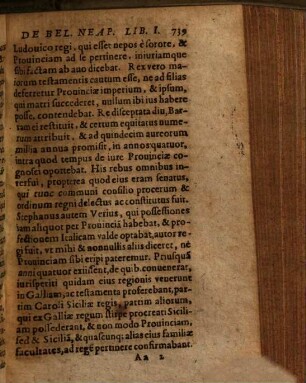 DE BEL. NEAP. LIB. I. 739
Ludouico regi, qui esset nepos è sorore, &
Prouinciam ad se pertinere, iniuriamque
sibi factam ab auo dicebat. Rex vero ma-
iorum testamentis cautum esse, ne ad filias
deferretur Prouinciæ imperium, & ipsum,
qui matri succederet, nullum ibi ius habere
posse, contendebat. Re disceptata diu, Bar-
ram ei restituit, & certum equitatus nume-
rum attribuit, & ad quindecim aureorum
millia annua promisit, in annos quatuor,
intra quod tempus de iure Prouinciæ co-
gnosci oportebat. His rebus omnibus in-
terfui, propterea quod eius eram senatus,
qui tunc communi consilio procerum &
ordinum regni delectus ac constitutus fuit.
Stephanus autem Verius, qui possessiones
iam aliquot per Prouinciā habebat, & pro-
fectionem Italicam valde optabat, autor re
gi fuit, vt mihi & nonnullis aliis diceret, ne
Prouinciam sibi eripi pateremur. Priusquā
anni quatuor exissent, de quib. conuenerat,
iurisperiti quidam eius regionis venerunt
in Galliam, ac testamenta proferebant, par-
tim Caroli Siciliæ regis, partim aliorum,
qui ex Galliæ regum stirpe procreati Sicili-
am possederant, & non modo Prouinciam,
sed & Siciliā, & quascunq; alias eius familiæ
facultates, ad regē pertinere confirmabant.
Aa 2